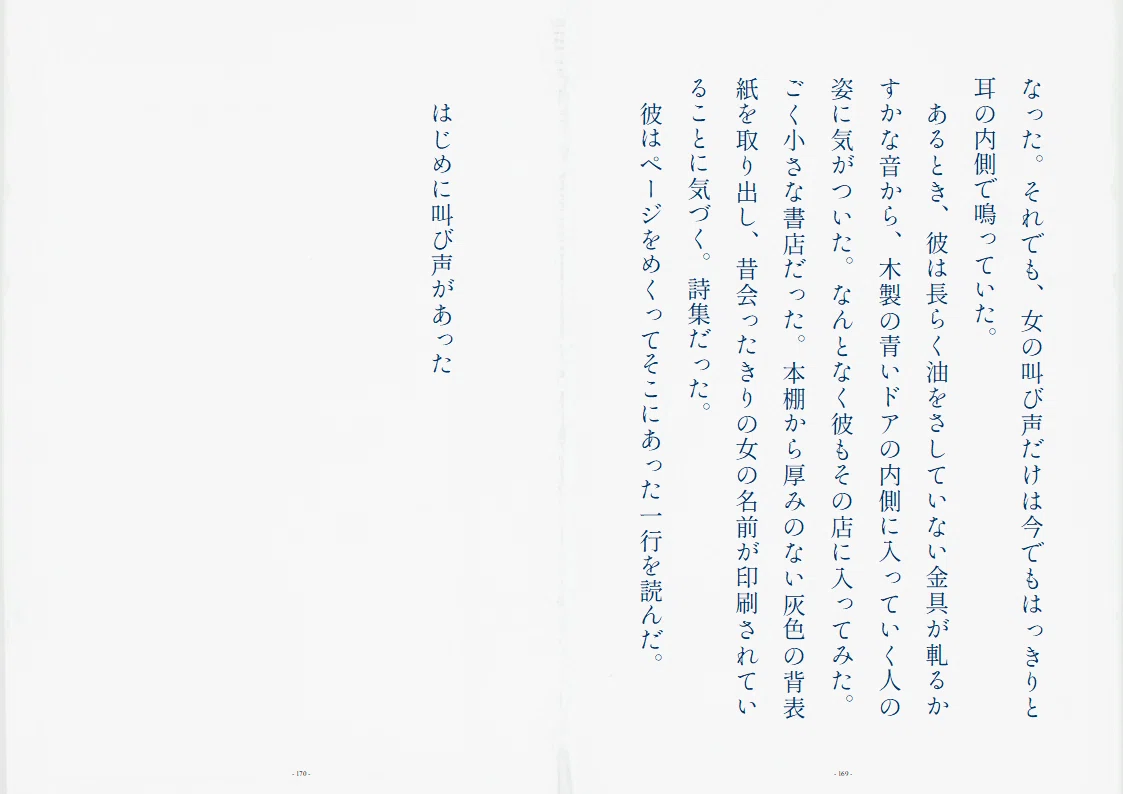 なった。それでも、女の叫び声だけは今でもはっきりと
耳の内側で鳴っていた。
あるとき、彼は長らく油をさしていない金具が軋るか
すかな音から、木製の青いドアの内側に入っていく人の
姿に気がついた。なんとなく彼もその店に入ってみた。
ごく小さな書店だった。本棚から厚みのない灰色の背表
紙を取り出し、昔会ったきりの女の名前が印刷されてい
ることに気づく。詩集だった。
彼はページをめくってそこにあった一行を読んだ。
- 169 -
はじめに叫び声があった
- 170 -